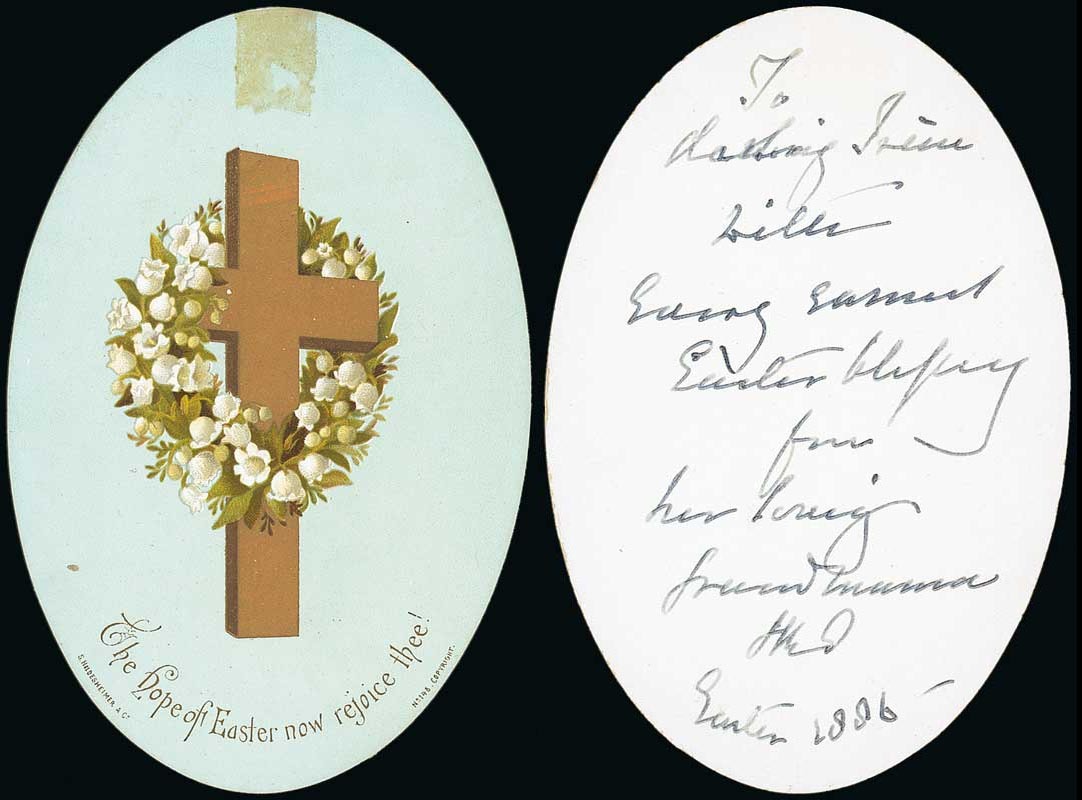 The hope of Easter now rejoice thee!
S. HILDESHEIMER & Co
No 148. COPYRIGHT.
To
darling Irène
With
Every earnest
Easter blessing
from
her loving
grandmama
Easter 1886